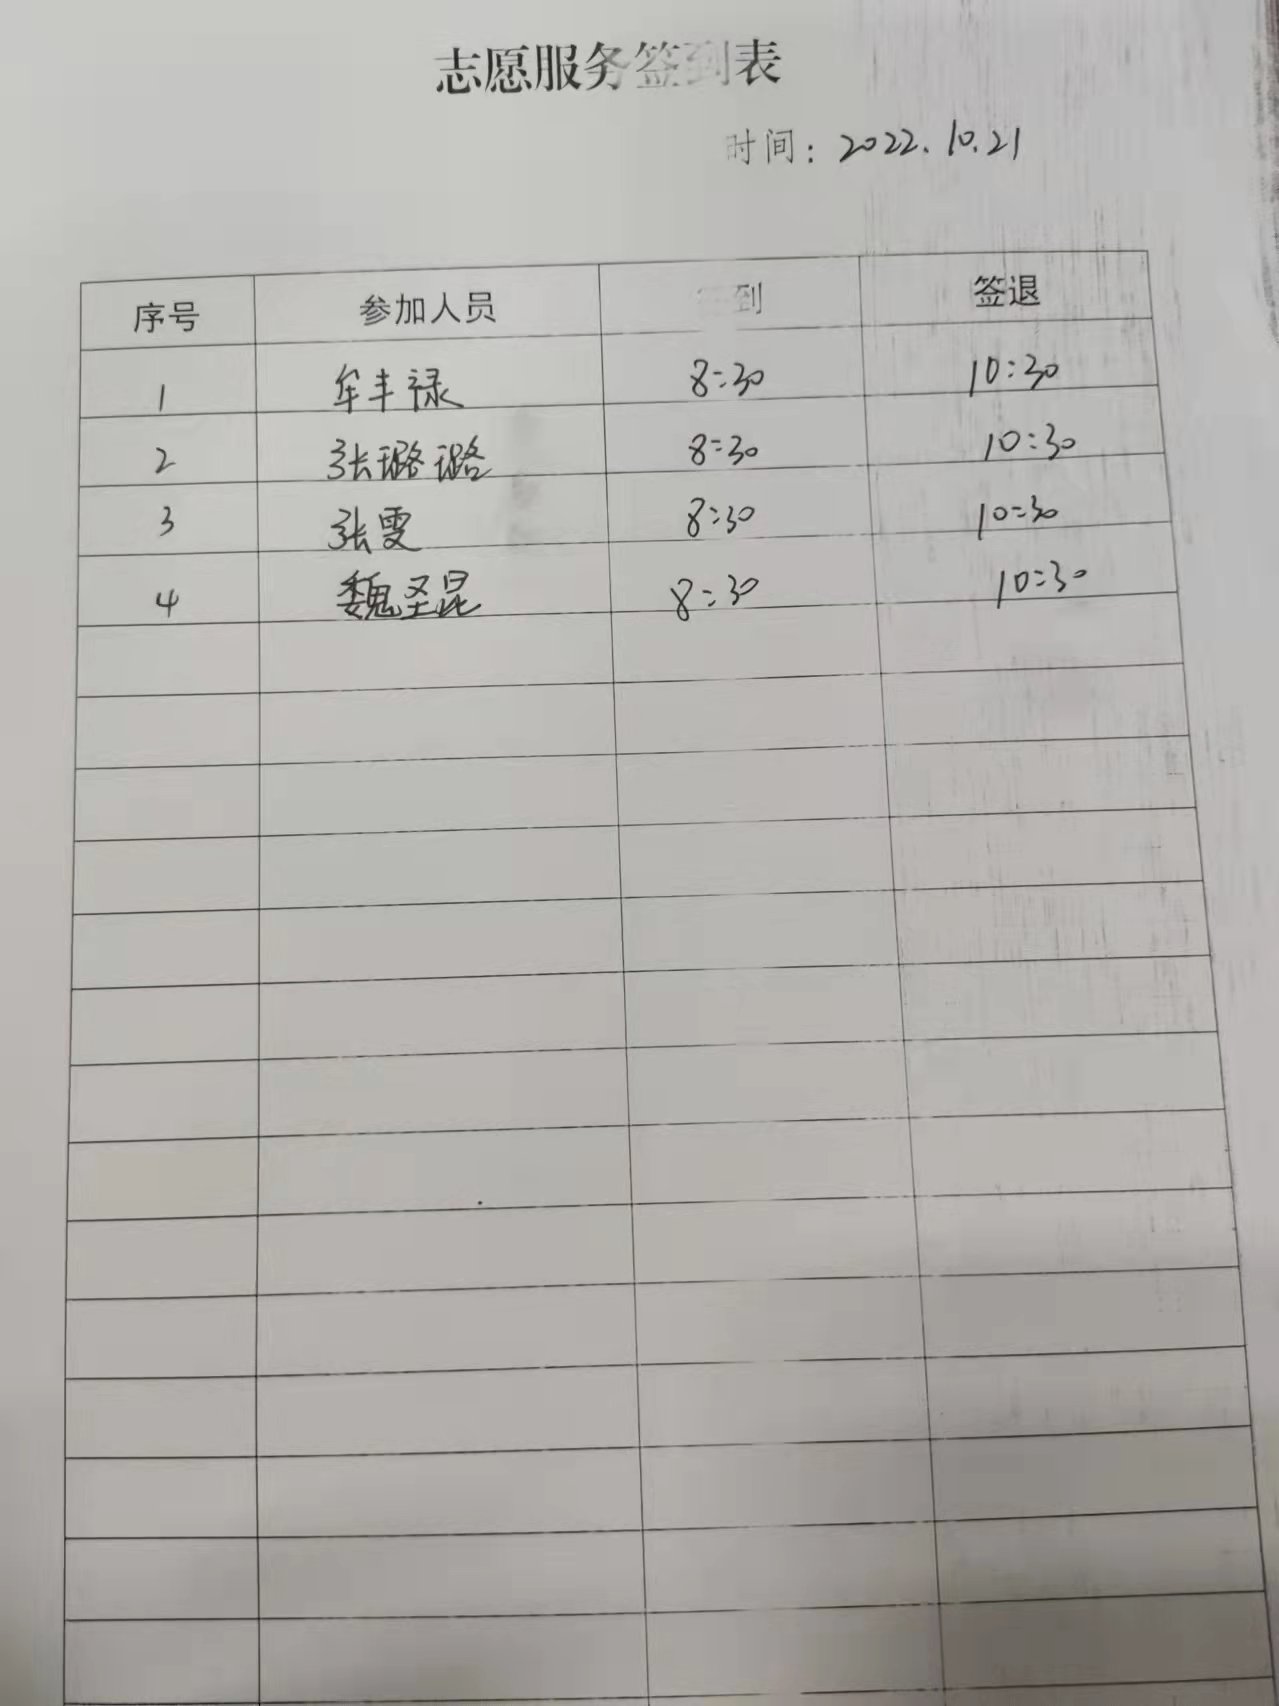 志愿服务签到表
时间：2022.10.21
序号 参加人员 签到 签退
1 牟丰禄 8:30 10:30
2 张璐璐 8:30 10:30
3 张雯 8:30 10:30
4 魏圣昆 8:30 10:30